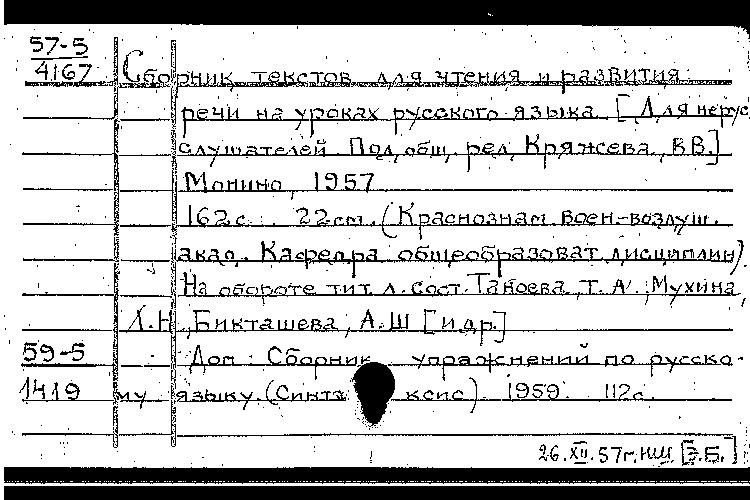 57-5
4167 Сборник текстов для чтения и развития
речи на уроках русского языка. [Для нерус.
слушателей. Под общ. ред. Кряжева, В.В.]
Монино, 1957
162с. 22см. (Краснознам. воен.-воздуш.
акад. Кафедра общеобразоват. дисциплин)
На обороте тит. л. сост. Таноева, Т. А., Мухина,
Л.Н., Бикташева, А.Ш [и др.]
59-5 Доп: Сборник упражнений по русско-
1419 му языку. (Синтаксис) 1959. 112с.
26.XII.57г. НШ [Э.Б.]